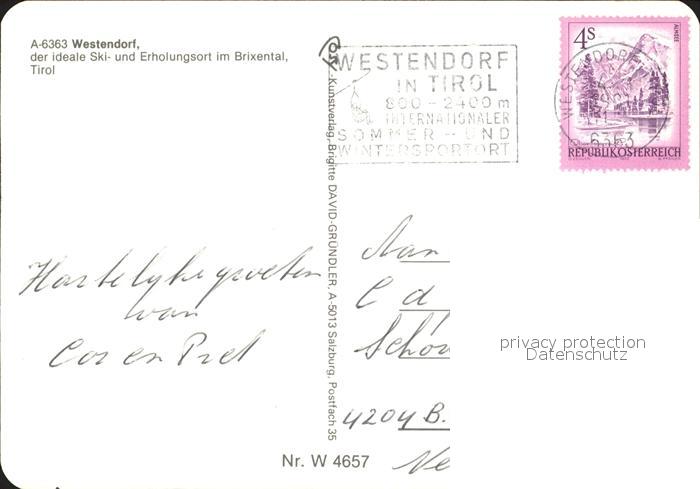 A-6363 Westendorf,
der ideale Ski- und Erholungsort im Brixental,
Tirol
WESTENDORF
IN TIROL
800 - 2400 m
INTERNATIONALER
SOMMER - UND
WINTERSPORTORT
4S
ALMSEE
WESTENDORF
6363
REPUBLIK ÖSTERREICH
-Kunstverlag, Brigitte DAVID-GRÜNDLER, A-5013 Salzburg, Postfach 35
Hartelijke groeten
van
Cor en Piet
Aan
C d
Schou
4204 B.
Ne
privacy protection
Datenschutz
Nr. W 4657